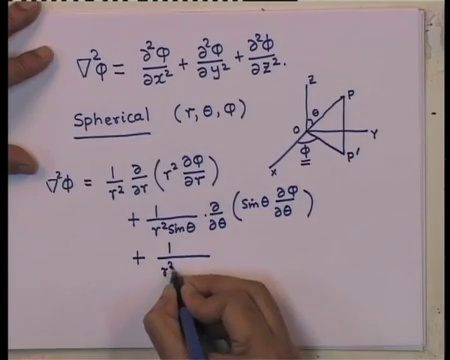 ∇²φ = ∂²φ/∂x² + ∂²φ/∂y² + ∂²φ/∂z².
Spherical (r, θ, φ)
Z
P
θ
O
Y
φ
P'
X
∇²φ = 1/r² ∂/∂r (r² ∂φ/∂r)
+ 1/r² sinθ · ∂/∂θ (sinθ ∂φ/∂θ)
+ 1/r²